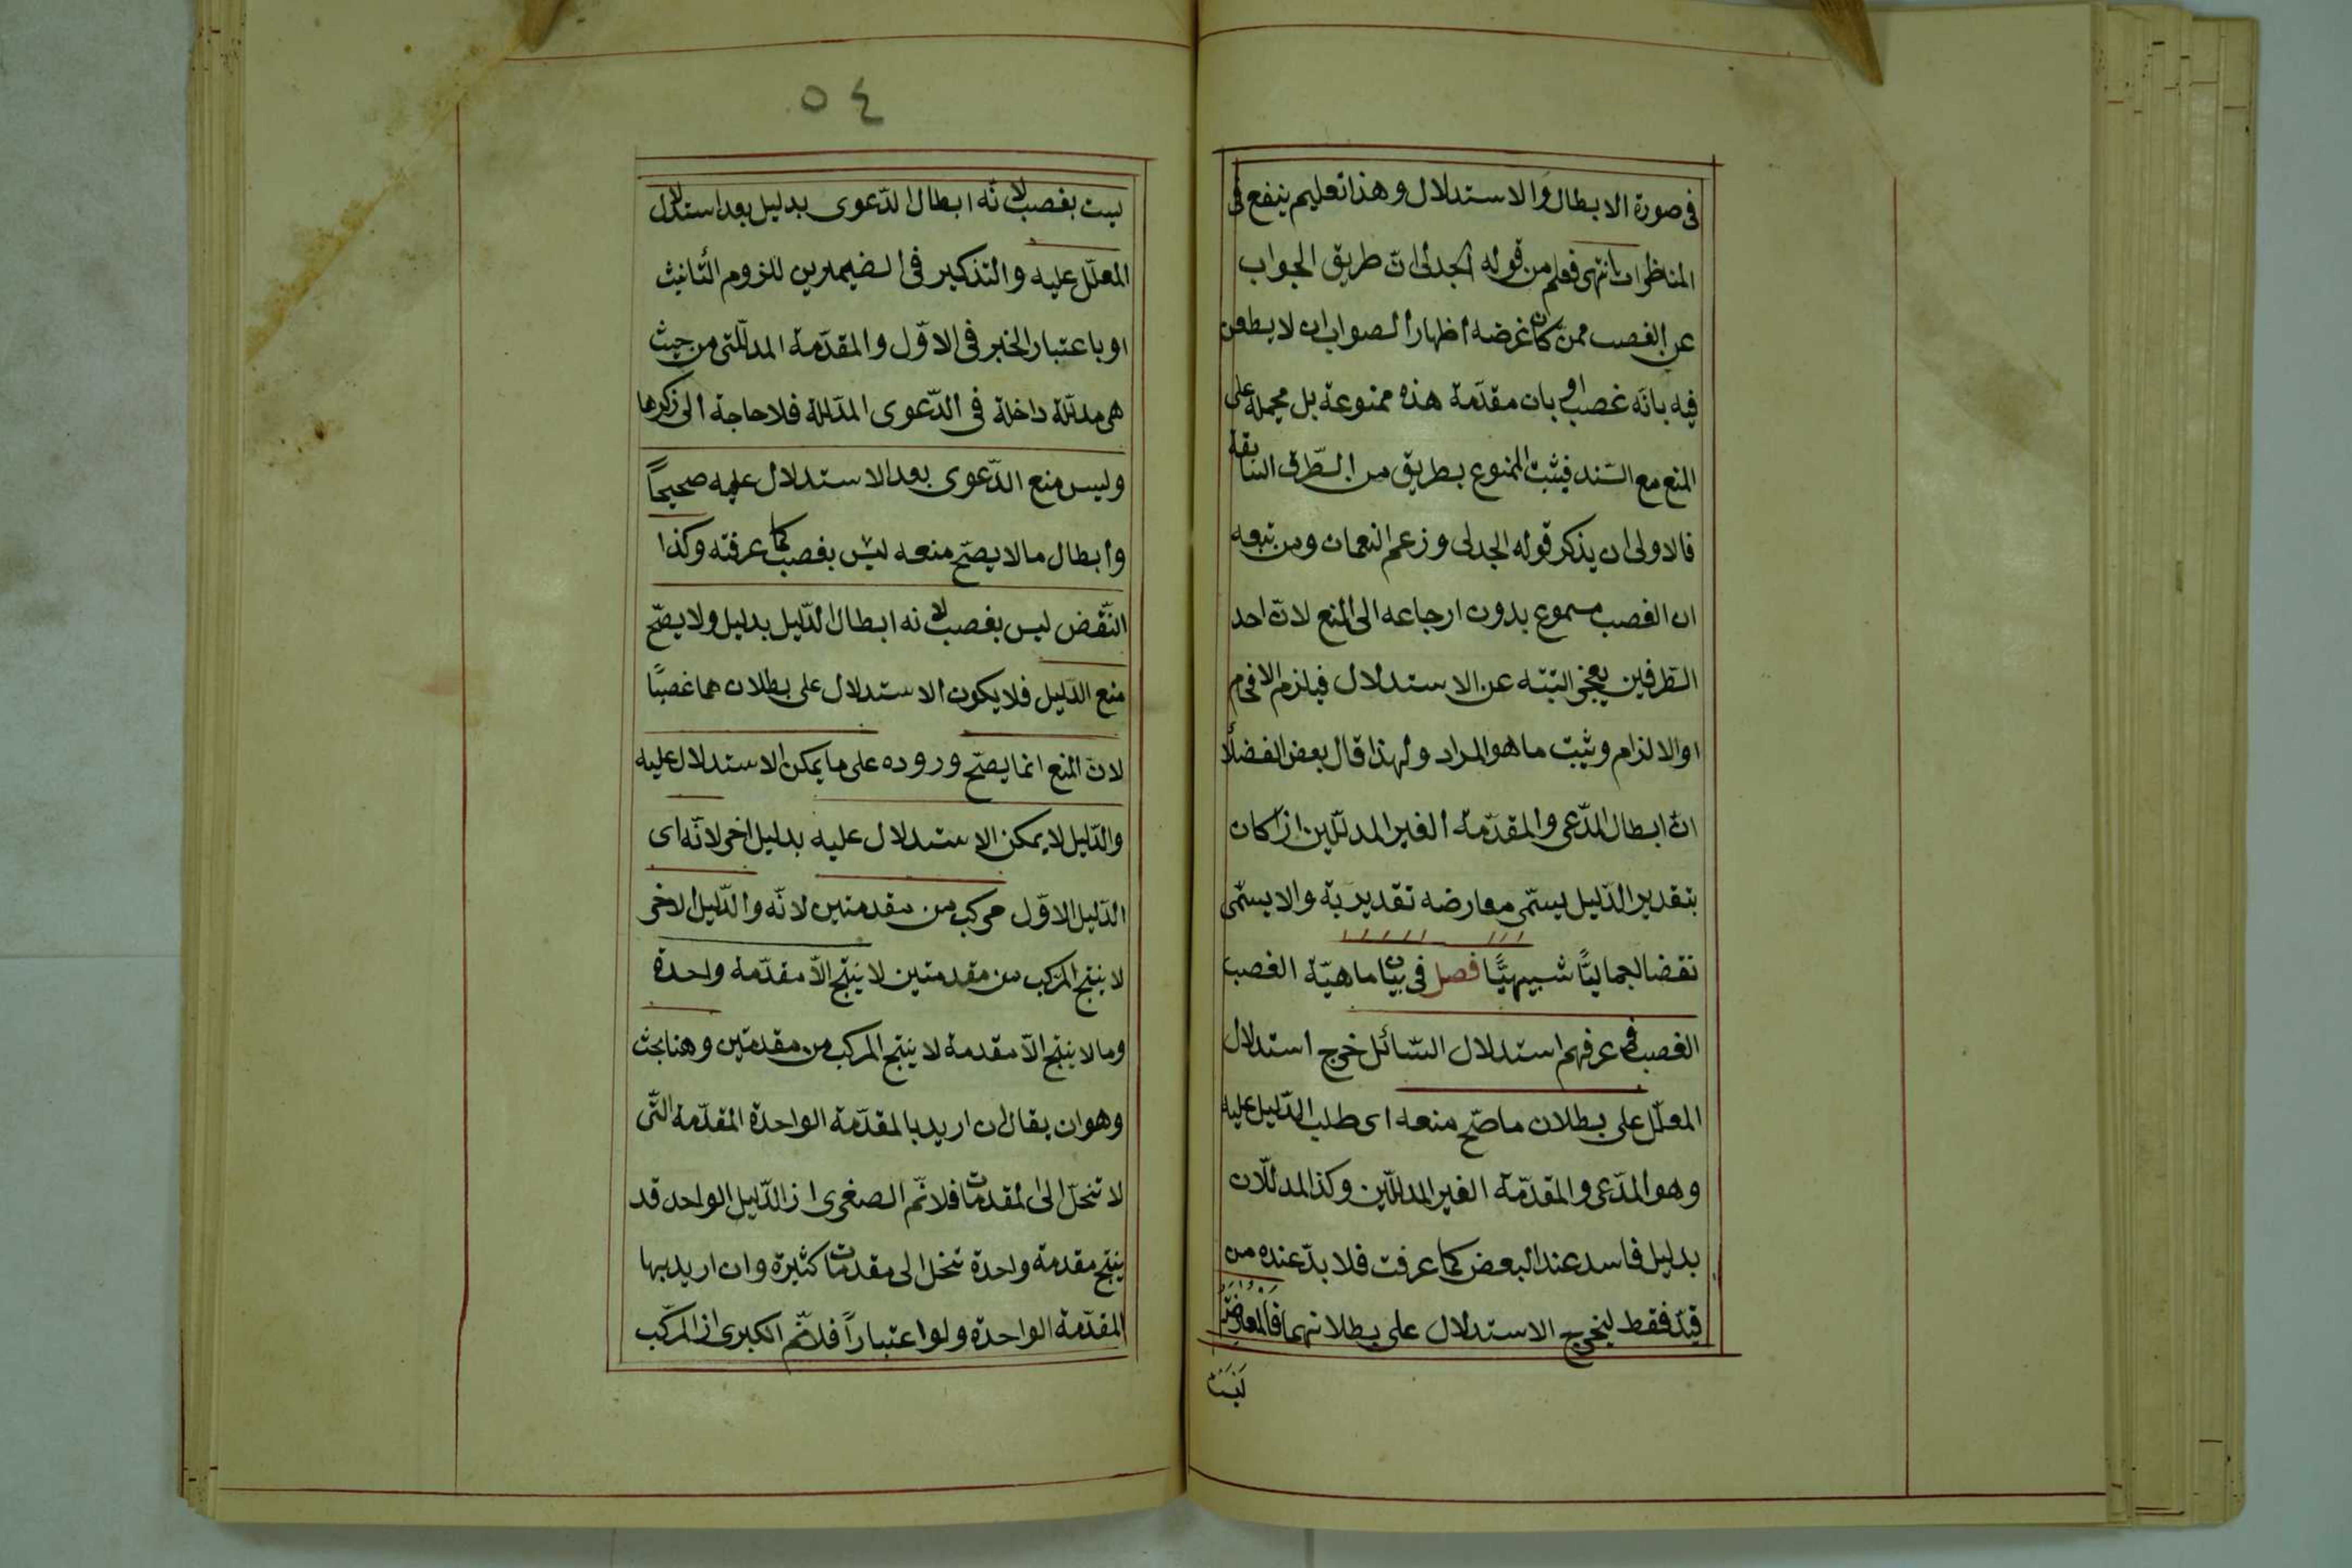 فى صورة الابطال والاستدلال وهذا تعليم ينفع فى
المناظرات انتهى فعلم من قوله الجدلى ان طريق الجواب
عن الغصب ممن كان غرضه اظهار الصواب ان لا يطعن
فيه بانه غصب او بان مقدّمة هذه ممنوعة بل يحمله على
المنع مع السّند فيثبت الممنوع بطريق من الطّرق السّابقة
فالاولى ان يذكر قوله الجدلى وزعم النعمان ومن تبعه
ان الغصب مسموع بدون ارجاعه الى المنع لانّ احد
الطّرفين يعجز البتّه عن الاستدلال فيلزم الافحام
او الالزام ويثبت ما هو المراد ولهذا قال بعض الفضلا
انّ ابطال المدّعى والمقدّمة الغير المدلّلين اذا كان
بتقدير الدّليل يسمّى معارضه تقديريّة والا يسمّى
نقضا اجماليًّا شبيهيًّا فصل فى بيان ماهيّة الغصب
الغصب فى عرفهم استدلال السّائل خرج استدلال
المعلّل على بطلان ما صحّ منعه اى طلب الدّليل عليه
وهو المدّعى والمقدّمة الغير المدلّلين وكذا المدلّلان
بدليل فاسد عند البعض كما عرفت فلا بدّ عنده من
قيد فقط ليخرج الاستدلال على بطلانهما فالمعارضة
ليست
٥٤
ليست بغصب لانّه ابطال الدّعوى بدليل بعد استدلال
المعلّل عليه والتذكير فى الضيميرين للزوم التّانيث
او باعتبار الخبر فى الاوّل والمقدّمة المدلّلتى من حيث
هى مدلّلة داخلة فى الدّعوى المدلّلة فلا حاجة الى ذكرها
وليس منع الدّعوى بعد الاستدلال عليه صحيحًا
وابطال ما لا يصحّ منعه ليس بغصب كما عرفته وكذا
النّقض ليس بغصب لانه ابطال الدّليل بدليل ولا يصحّ
منع الدّليل فلا يكون الاستدلال على بطلان هما غصبًا
لانّ المنع انما يصحّ وروده على ما يمكن الاستدلال عليه
والدّليل لا يمكن الاستدلال عليه بدليل اخر لانّه اى
الدّليل الاوّل مركب من مقدمتين لانّه والدّليل الاخر
لا ينتج المركب من مقدمتين لا ينتج الاّ مقدّمة واحدة
وما لا ينتج الاّ مقدمة لا ينتج المركب من مقدمتين وهنا بحث
وهو ان يقال ان اريد بالمقدّمة الواحدة المقدّمة التّى
لا تنحلّ الى المقدمات فلا نّم الصغرى اذ الدّليل الواحد قد
ينتج مقدمة واحدة تنحل الى مقدمات كثيرة وان اريد بها
المقدّمة الواحدة ولو اعتباراً فلا نّم الكبرى اذ المركّب